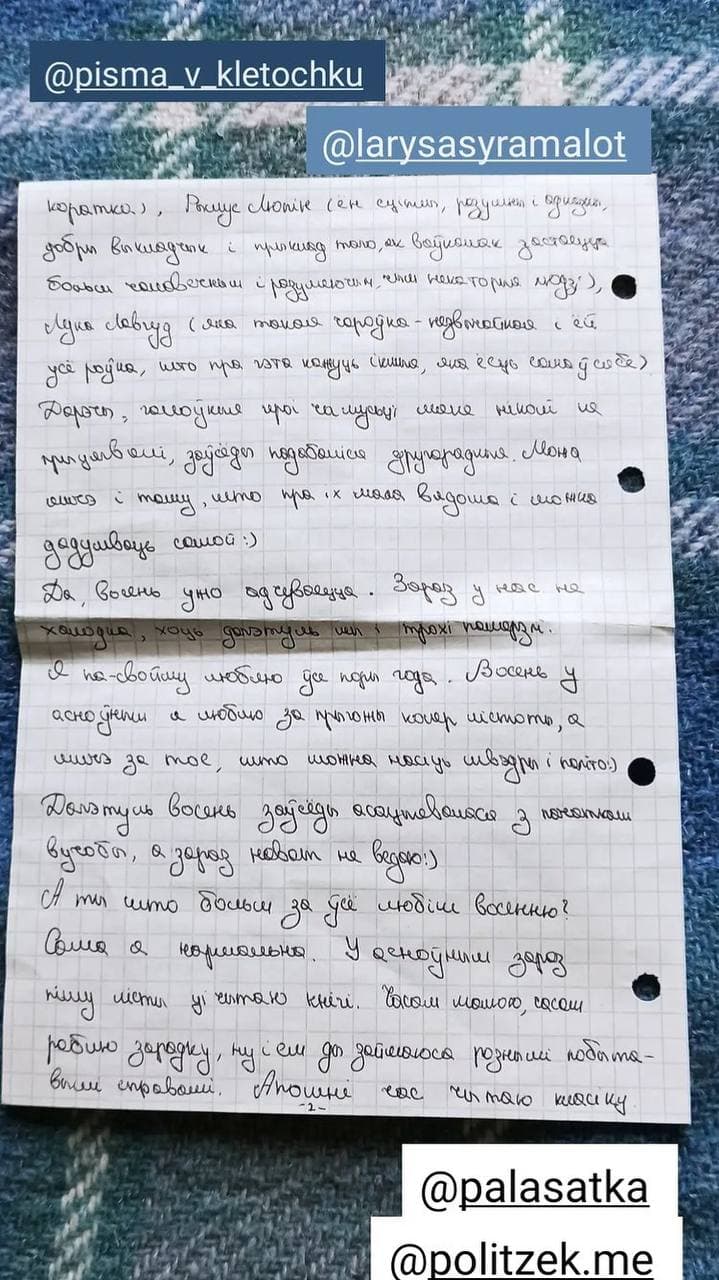 @pisma_v_kletochku
@larysasyramalot
коратка), Рымус Люпін (ён сціплы, разумны і адважны,
добры выкладчык і прыклад таго, як ваўкалак застаецца
больш чалавечным і разумеючым, чым некаторыя людзі),
Луна Лавгуд (яна таксама чароўна-незвычайная і ёй
усё роўна, што пра гэта кажуць іншыя, яна ёсць сама ў сабе)
Дарэчы, галоўныя героі чамусьці мяне ніколі не
прыцягвалі, заўсёды падабаліся другарадныя. Можа
яшчэ і таму, што пра іх мала вядома і можна
дадумваць самой:)
Да, восень ужо адчуваецца. Зараз у нас не
халодна, хоць дагэтуль і трохі памерзлі.
Я па-свойму люблю ўсе поры года. Восень у
асноўным я люблю за прыгожы колер лістоты, а
яшчэ за тое, што можна насіць швэдры і паліто:)
Дагэтуль восень заўсёды асацыявалася з пачаткам
вучобы, а зараз нават не ведаю:)
А ты што больш за ўсё любіш восенню?
Сама я нармальна. У асноўным зараз
пішу лісты ці чытаю кнігі. Часам малюю, часам
раблю зарадку, ну і ем ды займаюся рознымі побыта-
вымі справамі. Апошні час чытаю класіку.
-2-
@palasatka
@politzek.me